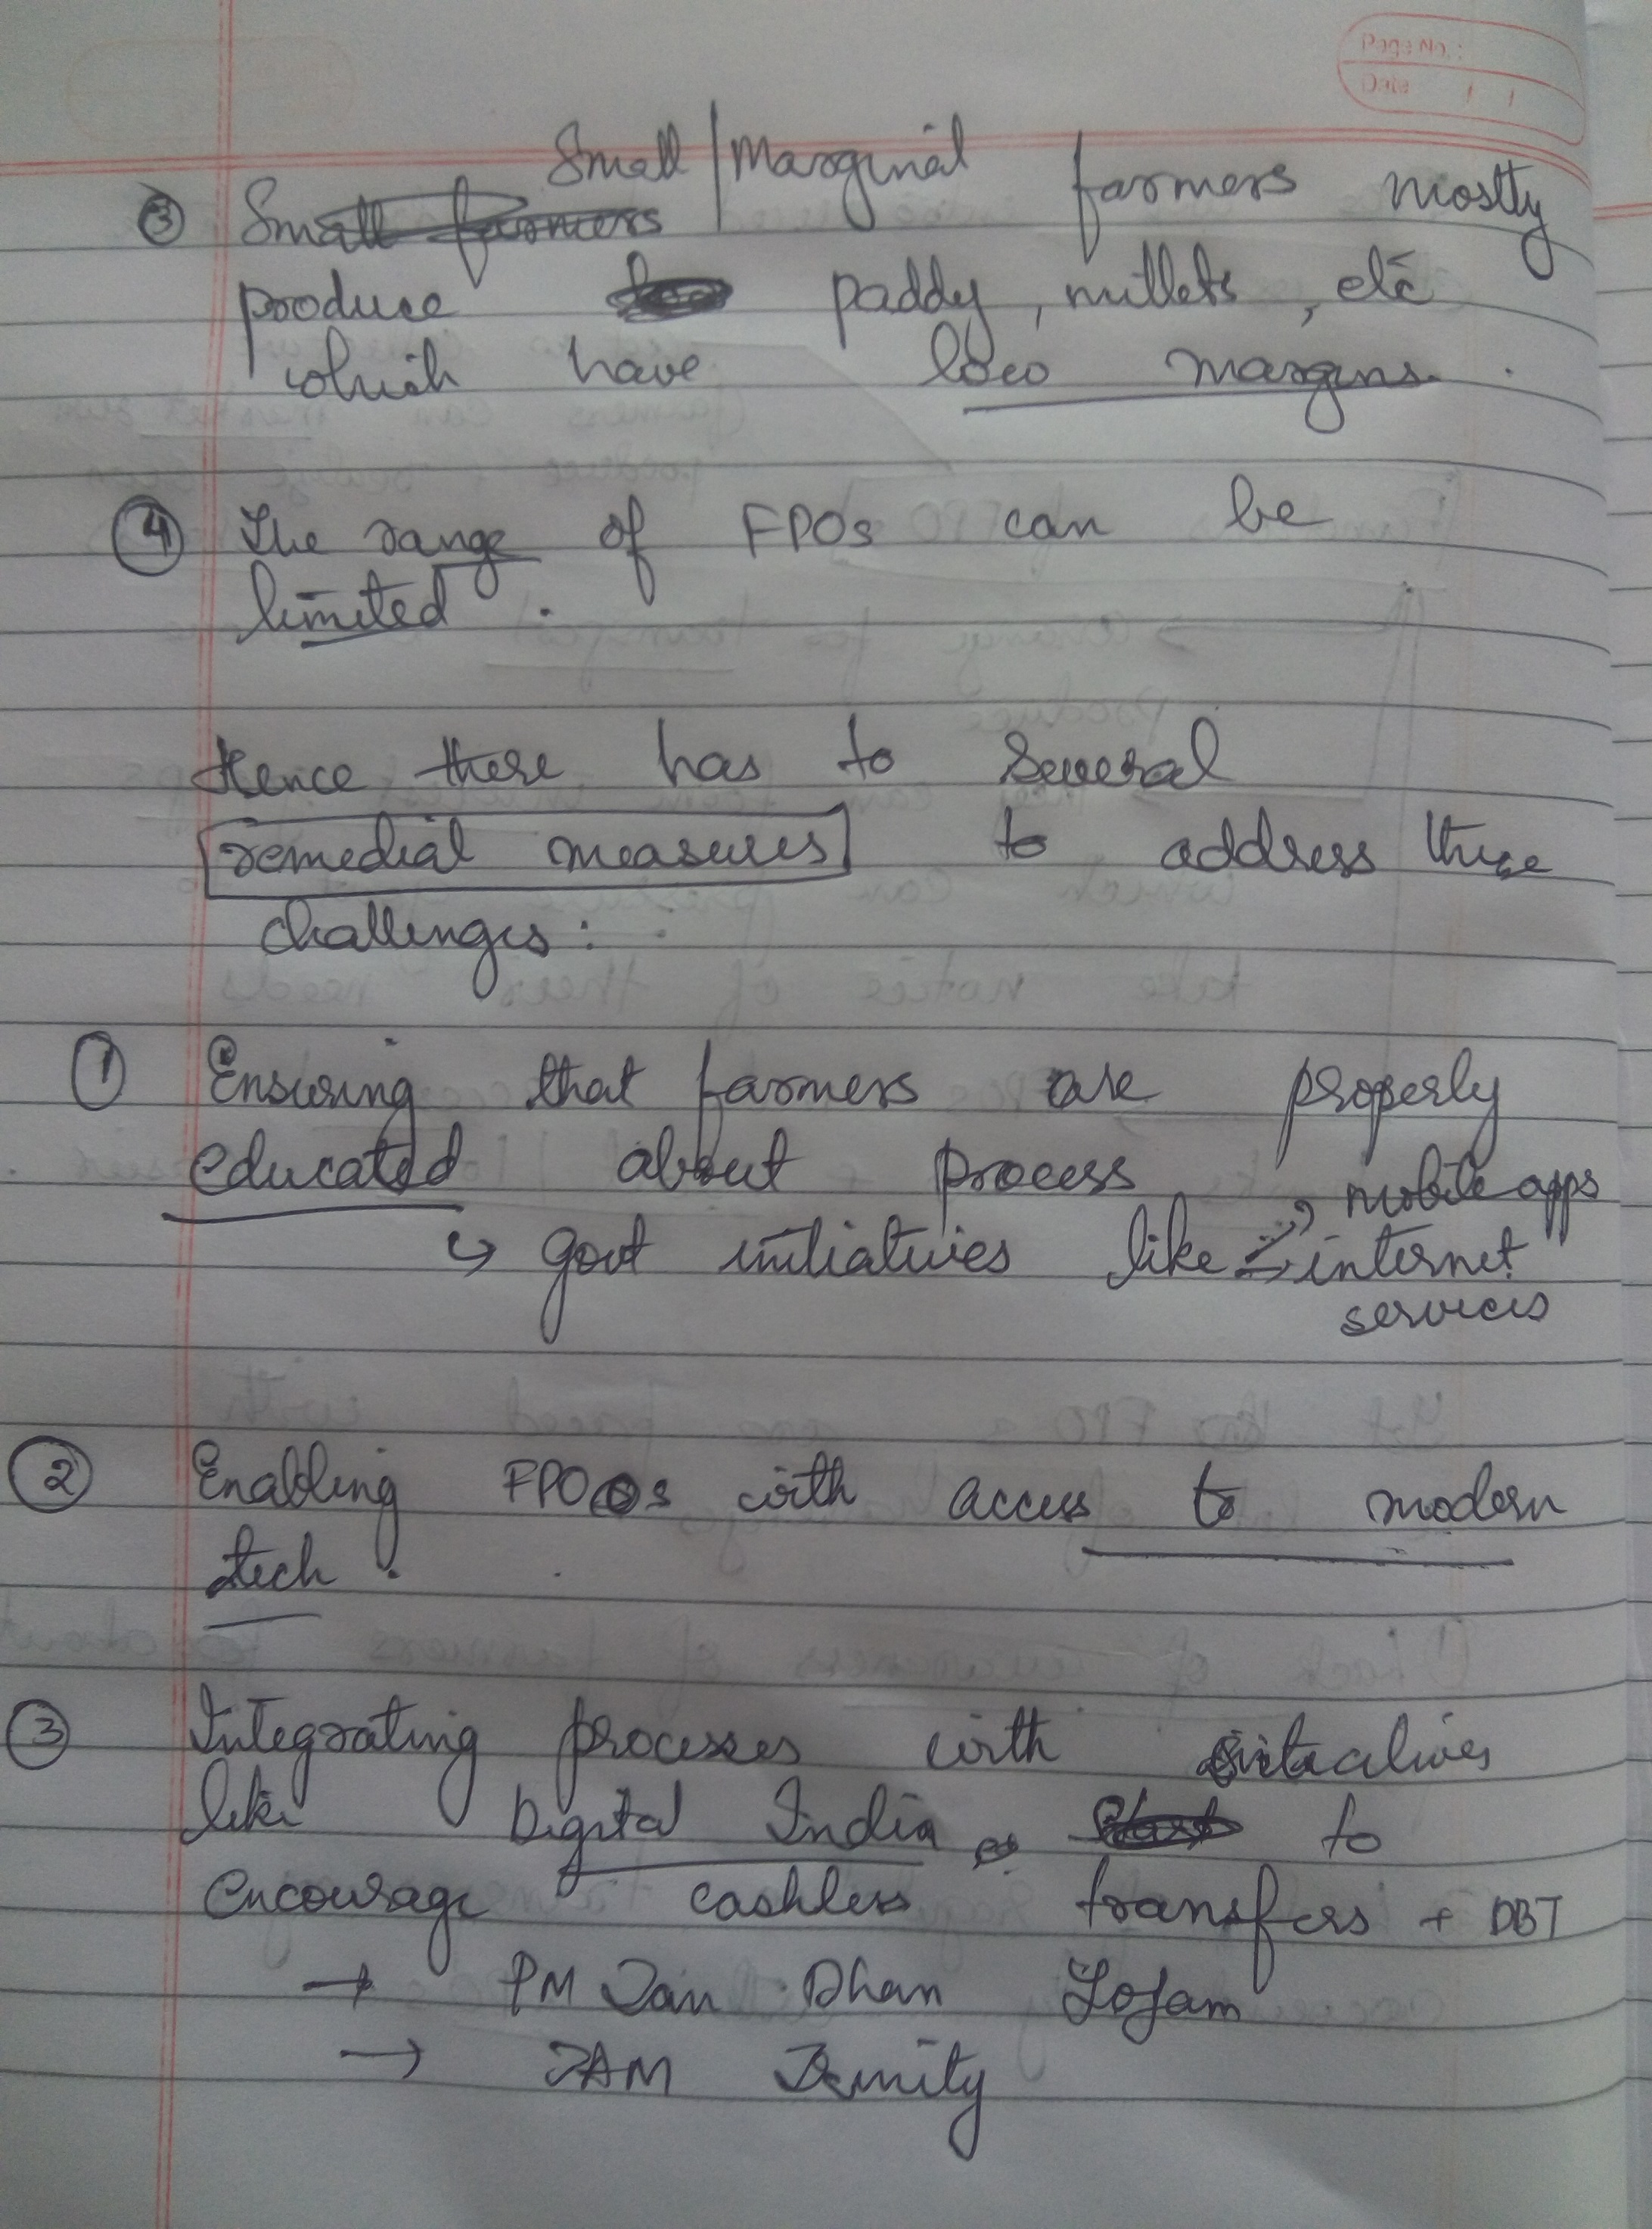 Page No.:
Date / /
Small/Marginal farmers mostly
③ Small farmers
produce paddy, millets, etc
which have low margins.
④ The range of FPOs can be
limited.
Hence there has to several
remedial measures to address these
challenges:
① Ensuring that farmers are properly
educated about process
↳ govt initiatives like → mobile apps
→ internet
services
② Enabling FPOs with access to modern
tech.
③ Integrating processes with
like Digital India to
encourage cashless transfers + DBT
→ PM Jan Dhan Yojam
→ JAM Trinity